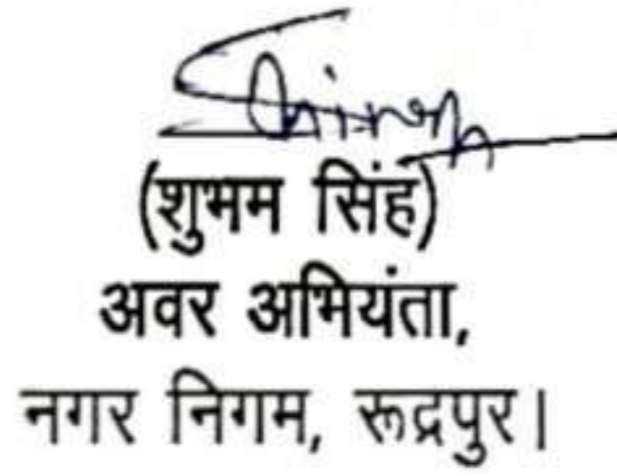 (शुभम सिंह)
अवर अभियंता,
नगर निगम, रूद्रपुर।